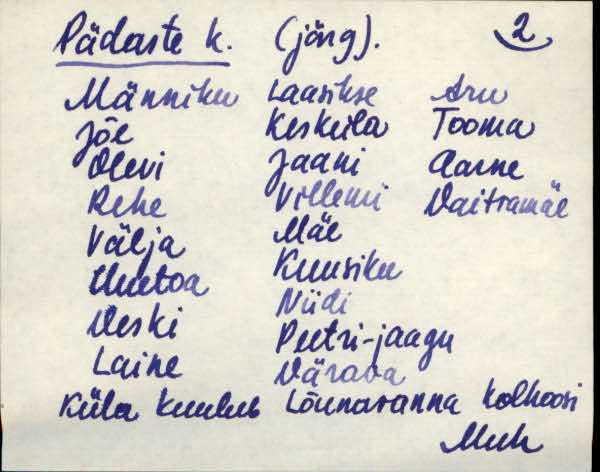 Pädaste k. (järg). 2
Männiku Laasikse Aru
Jõe Keskküla Tooma
Olevi Jaani Aarne
Rehe Villemi Vaitramäe
Välja Mäe
Uuetoa Kuusiku
Veski Niidi
Laine Peetri-jaagu
Värava
Küla kuulub Lõunaranna kolhoosi
Muh